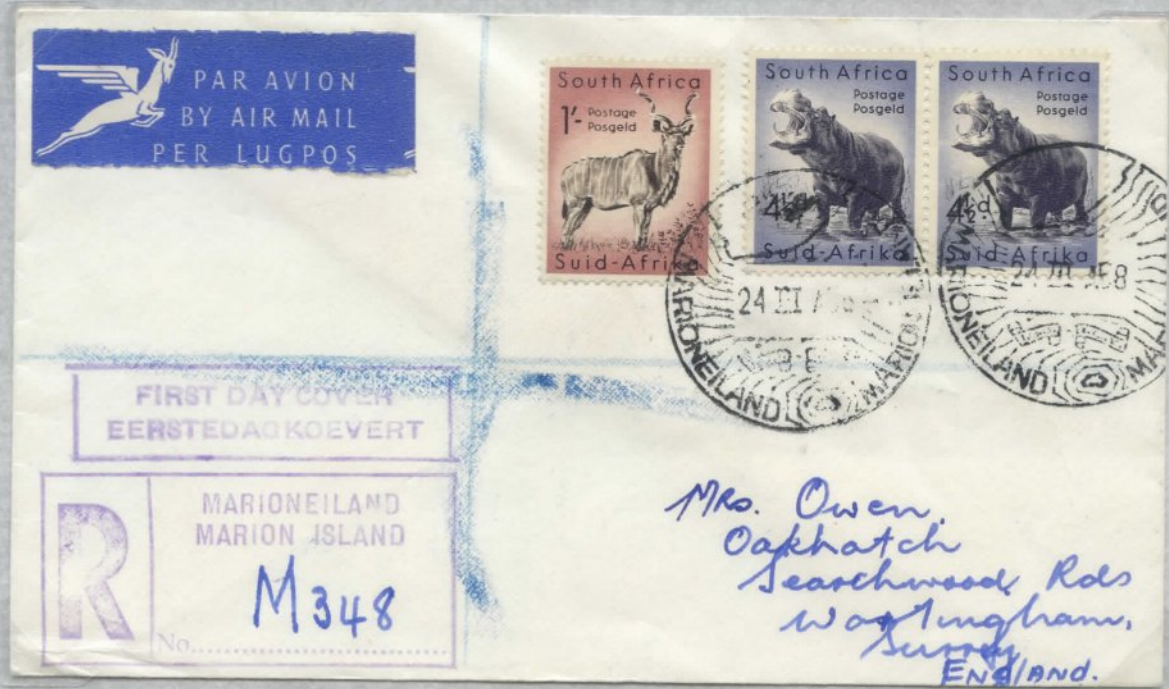 PAR AVION
BY AIR MAIL
PER LUGPOS
South Africa
1/- Postage
Posgeld
Suid-Afrika
South Africa
Postage
Posgeld
4½d
Suid-Afrika
South Africa
Postage
Posgeld
4½d
Suid-Afrika
MARIONEILAND MARION
24 III
MARIONEILAND
24 III 58
FIRST DAY COVER
EERSTEDAGKOEVERT
R
MARIONEILAND
MARION ISLAND
M348
No.
Mrs. Owen.
Oakhatch
Searchwood Rds
Warlingham,
Surrey
ENGLAND.